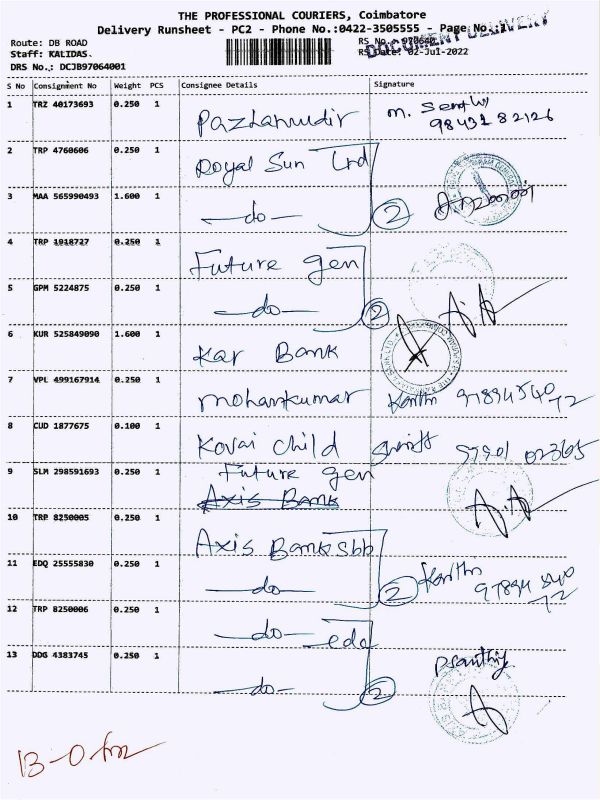 THE PROFESSIONAL COURIERS, Coimbatore
Delivery Runsheet - PC2 - Phone No.:0422-3505555 - Page No.:1
Route: DB ROAD
Staff: KALIDAS.
DRS No.: DCJB97064001
RS No. 970640
RS Date: 02-Jul-2022
DOCUMENT DELIVERY
S No Consignment No Weight PCS Consignee Details Signature
1 TRZ 40173693 0.250 1 Pazhamudir m. Senthil
98431 82126
2 TRP 4760606 0.250 1 Royal Sun Ltd
3 MAA 565990493 1.600 1 -do- 2
4 TRP 1918727 0.250 1 Future gen
5 GPM 5224875 0.250 1 -do- 2
6 KUR 525849090 1.600 1 Kar Bank
7 VPL 499167914 0.250 1 mohankumar 97894540
72
8 CUD 1877675 0.100 1 Kovai child 97901 02365
9 SLM 298591693 0.250 1 Future gen
Axis Bank
10 TRP 8250005 0.250 1 Axis Bank Sbb
11 EDQ 25555830 0.250 1 -do- 2
97894 540
72
12 TRP 8250006 0.250 1 -do- edq
13 DDG 4383745 0.250 1 -do- 2